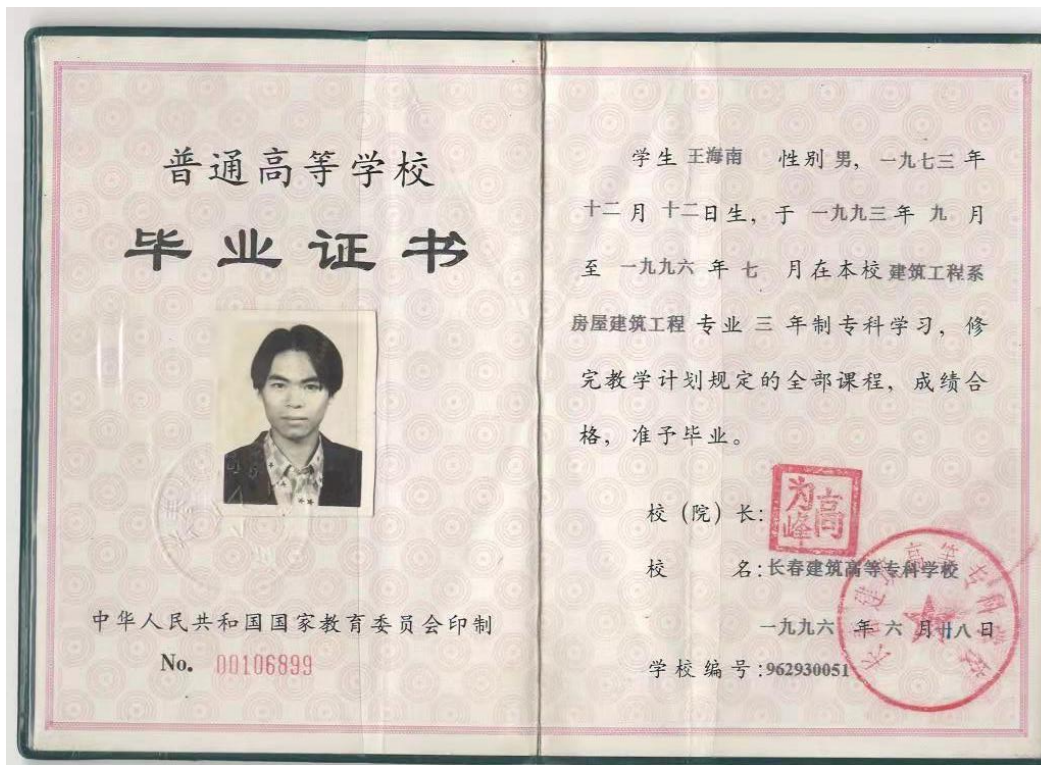 普通高等学校
毕业证书
中华人民共和国国家教育委员会印制
No. 00106899
学生 王海南 性别 男, 一九七三 年
十二 月 十二 日生, 于 一九九三 年 九 月
至 一九九六 年 七 月在本校 建筑工程系
房屋建筑工程 专业 三 年制专科学习, 修
完教学计划规定的全部课程, 成绩合
格, 准予毕业。
校（院）长:
高为峰
校 名: 长春建筑高等专科学校
一九九六 年 六 月 廿八 日
学校编号: 962930051
长春建筑高等专科学校